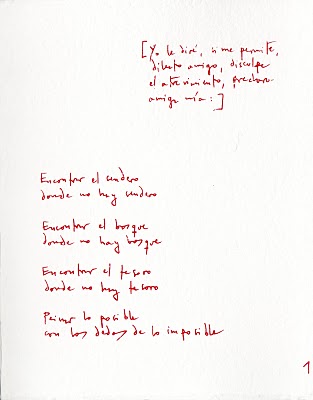 [Yo le diré, si me permite,
dilecto amigo, disculpe
el atrevimiento, preclara
amiga mía:]
Encontrar el sendero
donde no hay sendero
Encontrar el bosque
donde no hay bosque
Encontrar el tesoro
donde no hay tesoro
Peinar lo posible
con los dedos de lo imposible
1